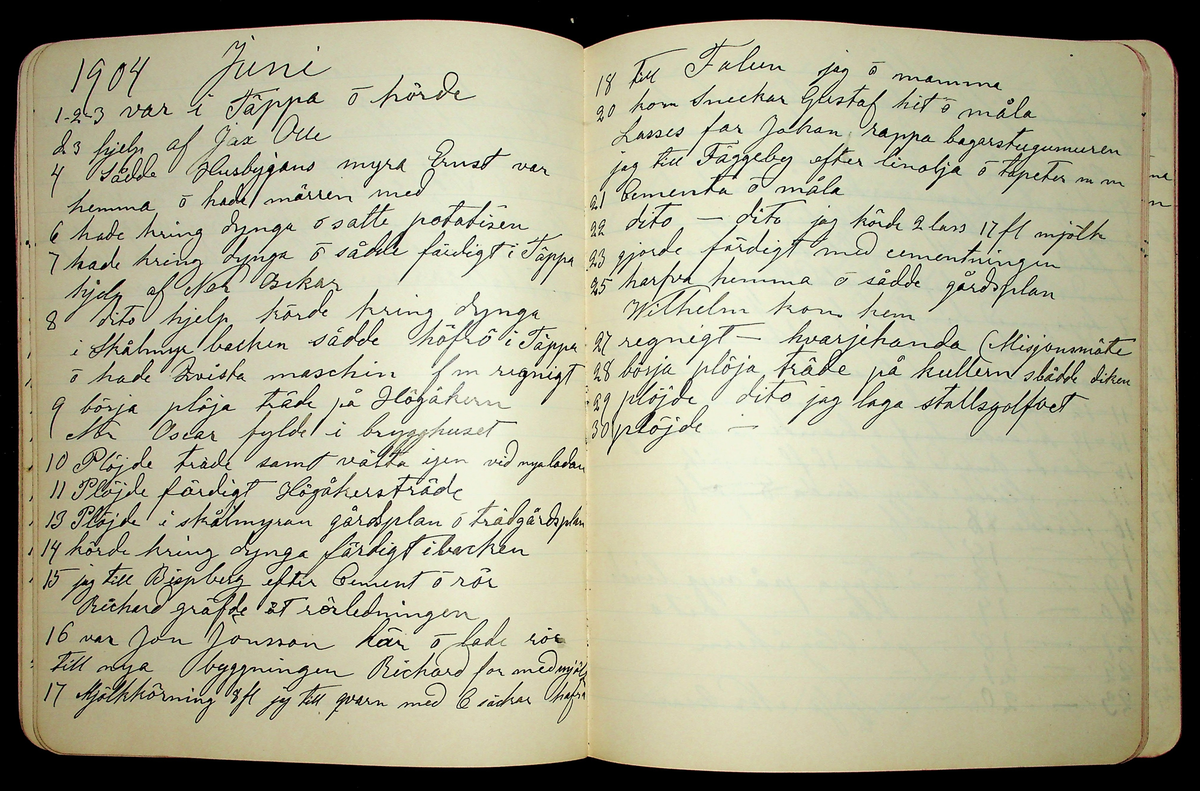 1904 Juni
1-2-3 var i Täppa ō körde
d 3 hjelp af Jax Olle
4 Sådde Husbygans myra Ernst var
hemma ō hade märren med
6 hade kring dynga ō satte potatisen
7 hade kring dynga ō sådde färdigt i Täppa
hjelp af Nor Oskar
8 dito hjelp körde kring dynga
i Skålmyr backen sådde höfrö i Täppa
ō hade Qvista maschin f m regnigt
9 börja plöja träde på Högåkern
Nor Oscar fylde i brygghuset
10 Plöjde träde samt välta igen vid nya ladan
11 Plöjde färdigt Högåkersträde
13 Plöjde i skålmyran gårdsplan ō trädgårdsplan
14 körde kring dynga färdigt i backen
15 jag till Bispberg efter Cement ō rör
Richard gräfde åt rörledningen
16 var Jon Jönsson här ō lade rör
till nya byggningen Richard for med mjölk
17 Mjölkkörning 8 fl jag till qvarn med 6 säckar hafra
18 till Falun jag ō mamma
20 kom Sneckar Gustaf hit ō måla
Lasses far Johan rappa bagarstugumuren
jag till Fäggeby efter linolja ō tapeter m m
21 Cementa ō måla
22 dito — dito jag körde 2 lass 17 fl mjölk
23 gjorde färdigt med cementningen
25 harfva hemma ō sådde gårdsplan
Wilhelm kom hem
27 regnigt — hvarjehanda (Misjonsmöte
28 börja plöja träde på kullern slådde diken
29 plöjde dito jag laga stallsgolfvet
30 plöjde —